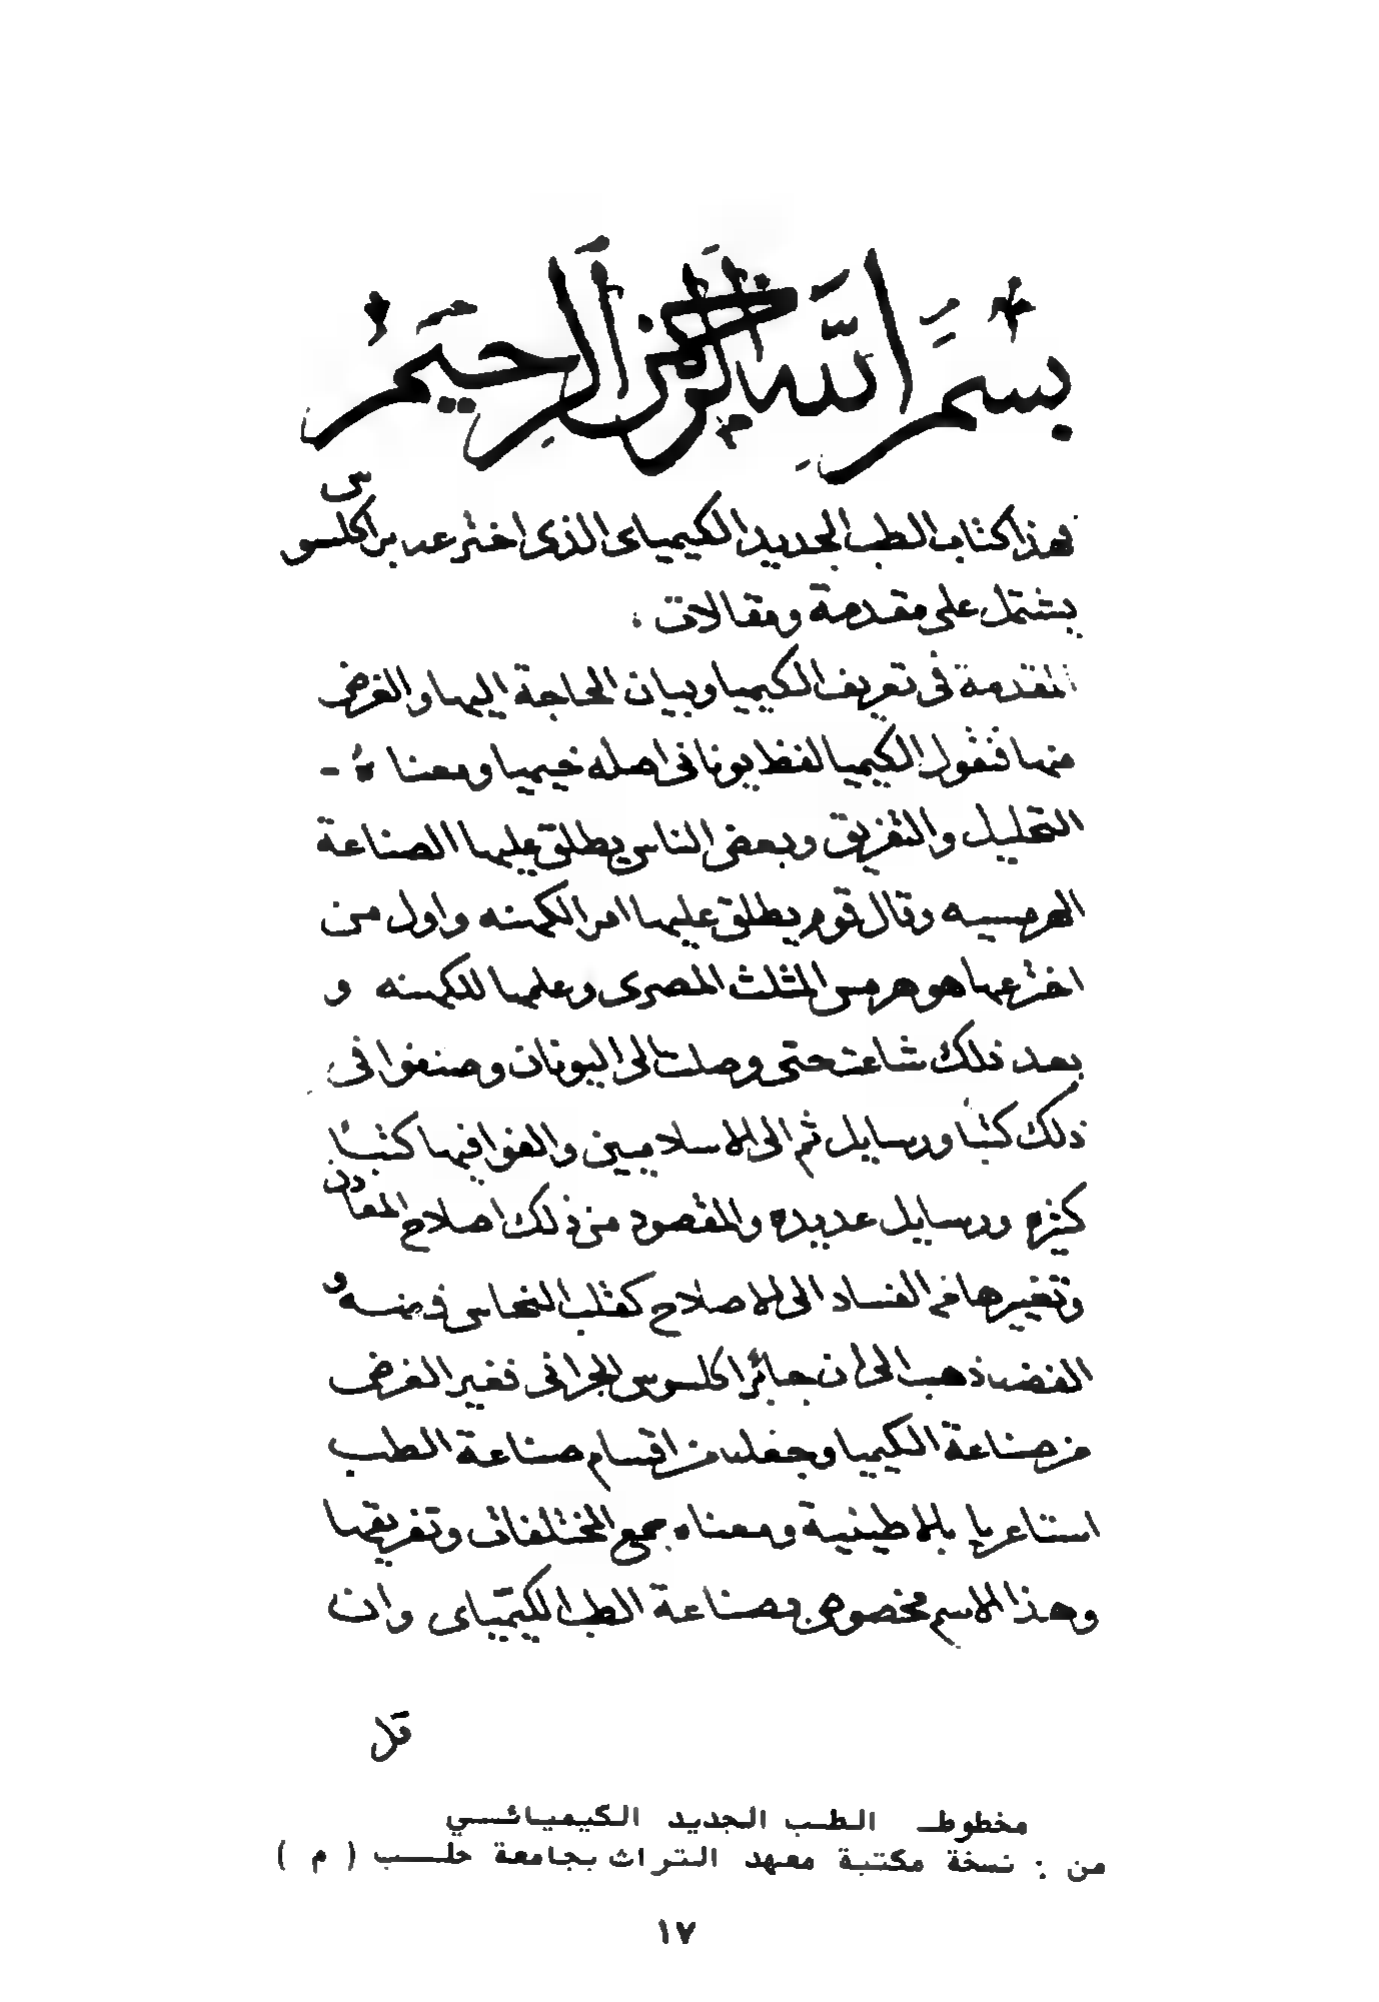 بسم الله الرحمن الرحيم
فهذا كتاب الطب الجديد الكيمياى الذى اخترعه براكلسوس
يشتمل على مقدمة ومقالات .
المقدمة فى تعريف الكيميا وبيان الحاجة اليها والغرض
منها فنقول الكيميا لفظ يونانى اصله خيميا ومعناه -
التحليل والتفريق وبعض الناس يطلق عليها الصناعة
الهرمسيه وقال قوم يطلق عليها امر الكهنه واول من
اخترعها هو هرمس المثلث المصرى وعلمها للكهنه و
بعد ذلك شاعت حتى وصلت الى اليونان وصنفوا فى
ذلك كتبا ورسايل ثم الى الاسلاميين والفوا فيها كتبا
كثيره ورسايل عديده والمقصود من ذلك اصلاح المعادن
وتغييرها من الفساد الى الاصلاح كقلب النحاس فضه و
الفضه ذهب الى ان جا براكلسوس الجرمانى فغير الغرض
من صناعة الكيميا وجعله من اقسام صناعة الطب
استاعريا بالاطينية ومعناه جمع المختلفات وتفريقها
وهذا الاسم مخصوص بصناعة الطب الكيمياى وان
قل
مخطوط الطب الجديد الكيميائي
من : نسخة مكتبة معهد التراث بجامعة حلب ( م )
١٧